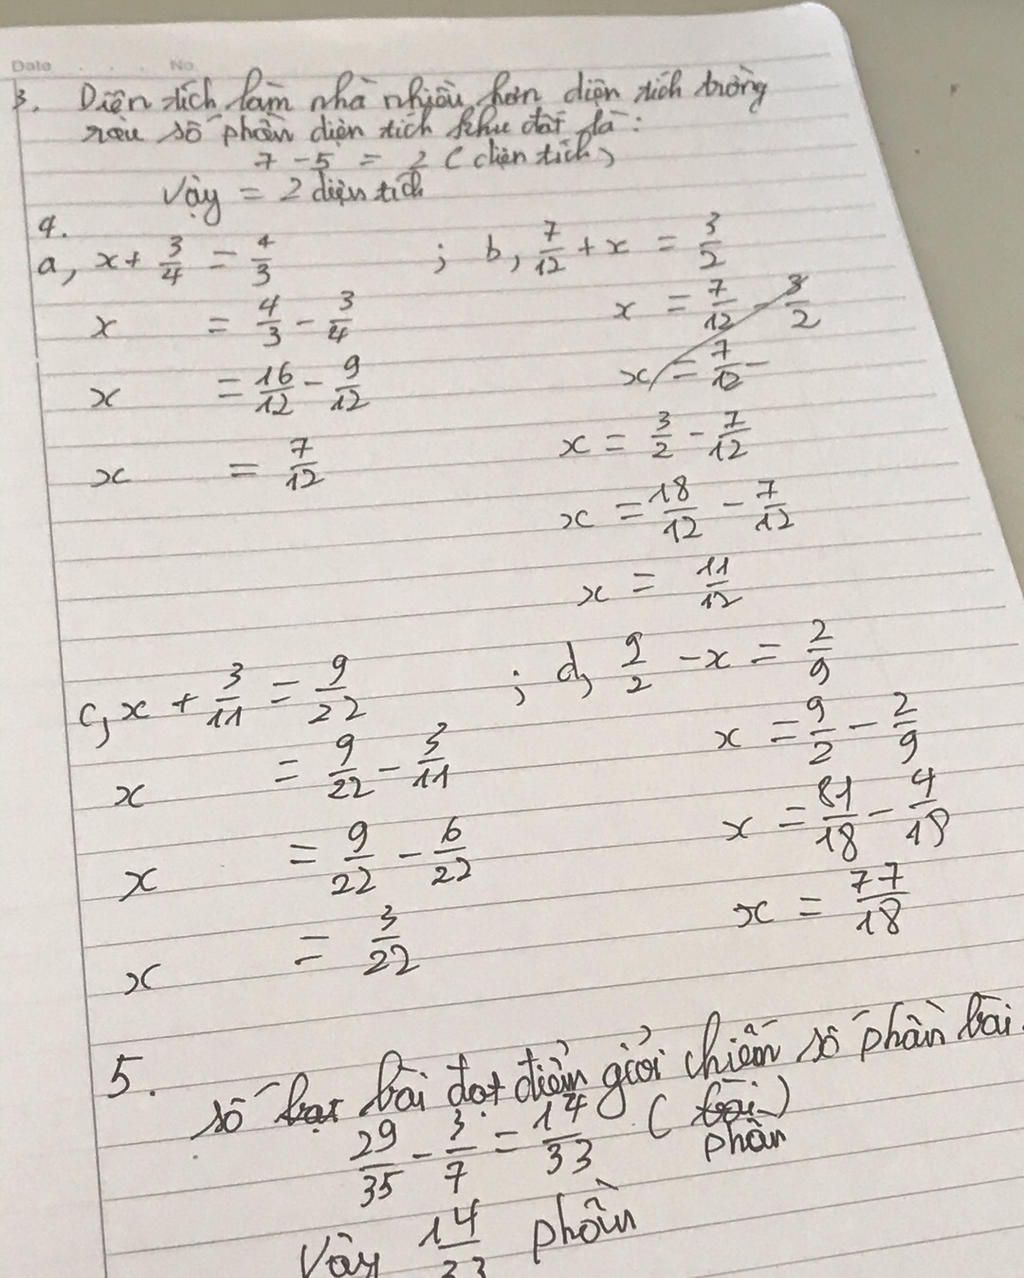 Date No
3. Diện tích làm nhà nhiều hơn diện tích trồng
rau số phần diện tích khu đất là:
7 - 5 = 2 (diện tích)
Vậy = 2 diện tích
4.
a, x + 3/4 = 4/3 ; b, 7/12 + x = 3/2
x = 4/3 - 3/4 x = 7/12 - 3/2
x = 16/12 - 9/12 x = 7/12 -
x = 7/12 x = 3/2 - 7/12
x = 18/12 - 7/12
x = 11/12
c, x + 3/11 = 9/22 ; d, 9/2 - x = 2/9
x = 9/22 - 3/11 x = 9/2 - 2/9
x = 9/22 - 6/22 x = 81/18 - 4/18
x = 3/22 x = 77/18
5.
số bài đạt điểm giỏi chiếm số phần bài
29/35 - 3/7 = 14/33 (bài)
phần
Vậy 14/33 phần